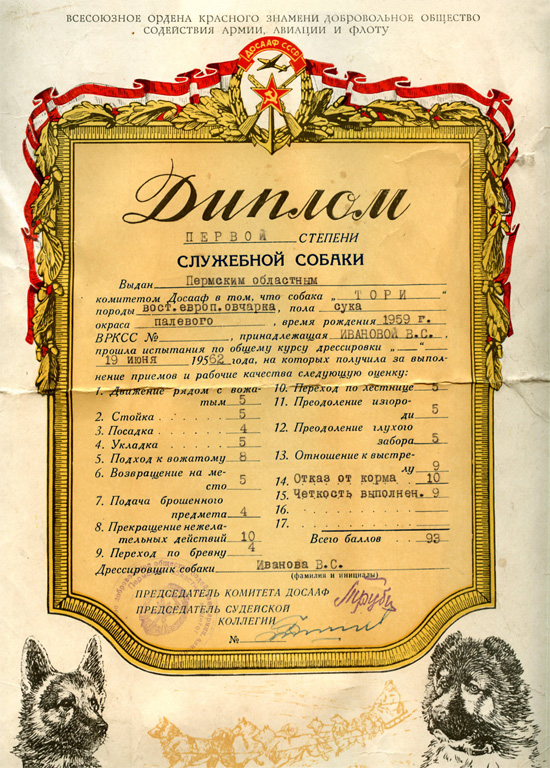 ВСЕСОЮЗНОЕ ОРДЕНА КРАСНОГО ЗНАМЕНИ ДОБРОВОЛЬНОЕ ОБЩЕСТВО
СОДЕЙСТВИЯ АРМИИ, АВИАЦИИ И ФЛОТУ
ДОСААФ СССР
Диплом
ПЕРВОЙ СТЕПЕНИ
СЛУЖЕБНОЙ СОБАКИ
Выдан Пермским областным
комитетом Досааф в том, что собака „ ТОРИ “
породы вост.европ.овчарка, пола сука
окраса палевого, время рождения 1959 г.
ВРКСС № , принадлежащая ИВАНОВОЙ В.С.,
прошла испытания по общему курсу дрессировки „ “
19 июня 19562 года, на которых получила за выпол-
нение приемов и рабочие качества следующую оценку:
1. Движение рядом с вожа-
тым 5
2. Стойка 5
3. Посадка 4
4. Укладка 5
5. Подход к вожатому 8
6. Возвращение на ме-
сто 5
7. Подача брошенного
предмета 4
8. Прекращение нежела-
тельных действий 10
9. Переход по бревну 4
10. Переход по лестнице 5
11. Преодоление изгоро-
ди 5
12. Преодоление глухого
забора 5
13. Отношение к выстре-
лу 9
14. Отказ от корма 10
15. Четкость выполнен. 9
16.
17.
Всего баллов 93
Дрессировщик собаки Иванова В.С.
(фамилия и инициалы)
ПРЕДСЕДАТЕЛЬ КОМИТЕТА ДОСААФ
ПРЕДСЕДАТЕЛЬ СУДЕЙСКОЙ
КОЛЛЕГИИ
№